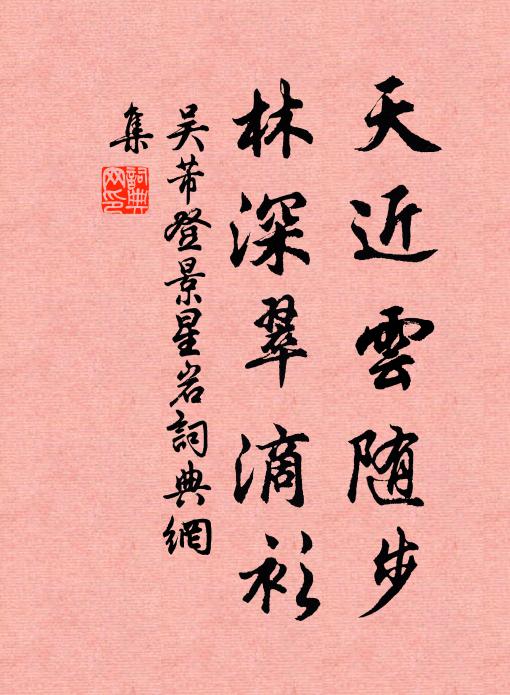 天近雲随步
林深翠滴衫
吴芾登景星岩詞典網
集
詞典
网印